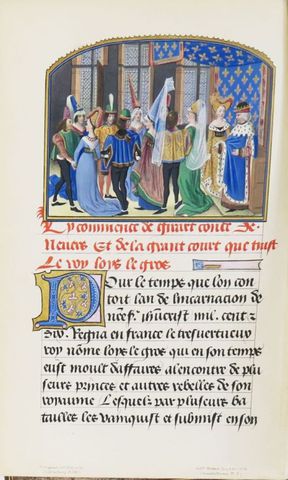 Cy commence de girart conte de
Nevers Et de la grant court que tinst
Le roy loys le gros
Pour le temps que lon con
toit lan de lincarnacion de
Regna en france le tresvertueux
roy nomme loys le gros qui en son temps
eust moult daffaires alencontre de plu
seurs princes et autres rebelles de son
royaume Lesquelz par pluseurs ba
tailles les vanquist et submist en son